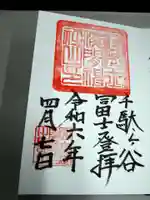 千駄ヶ谷
富士登拝
令和六年
四月七日